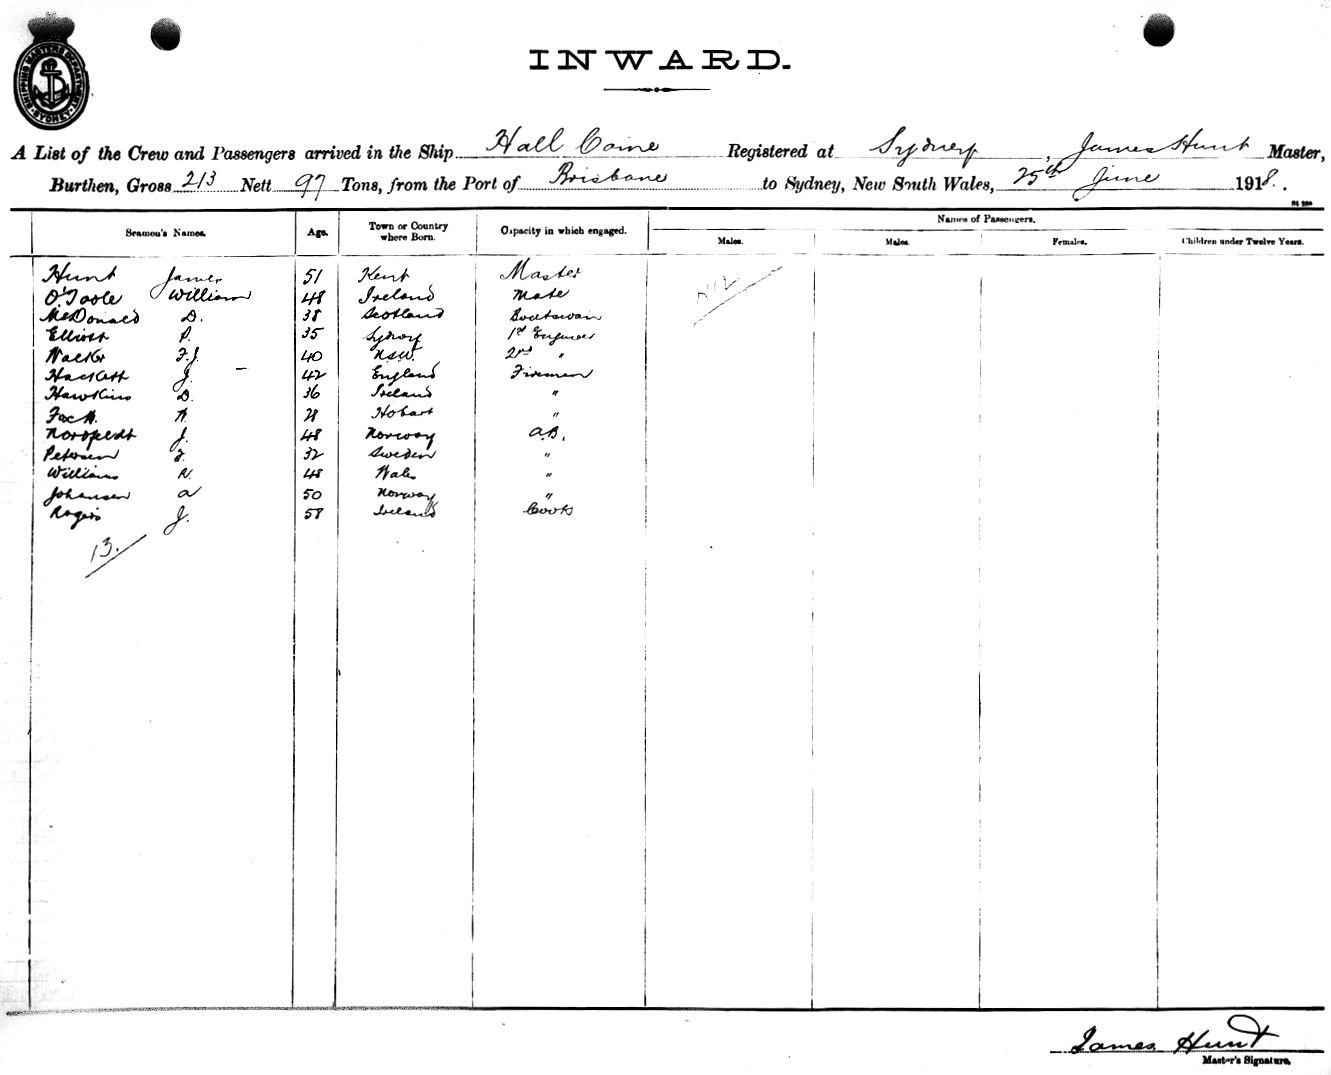 SHIPPING MASTERS DEPARTMENT SYDNEY
INWARD.
A List of the Crew and Passengers arrived in the Ship Hall Caine Registered at Sydney, James Hunt Master,
Burthen, Gross 213 Nett 97 Tons, from the Port of Brisbane to Sydney, New South Wales, 25th June 1918.
Names of Passengers.
Seamen's Names. Age. Town or Country where Born. Capacity in which engaged. Males. Males. Females. Children under Twelve Years.
Hunt James 51 Kent Master Nil
O'Toole William 48 Ireland Mate
McDonald D. 38 Scotland Boatswain
Elliott P. 35 Sydney 1st Engineer
Walker F.J. 40 N.S.W. 2nd "
Hackett J. 42 England Fireman
Hawkins D. 36 Ireland "
28 Hobart "
J. 48 Norway A.B.
Petersen 32 Sweden "
Williams R. 48 Wales "
Johansen A 50 Norway "
Rogers J. 58 Ireland Cook
13.
James Hunt
Master's Signature.